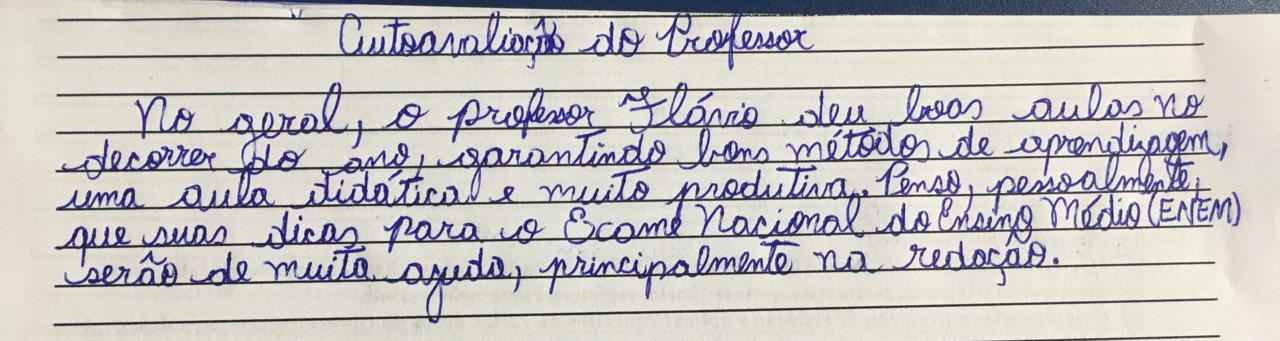 Autoavaliação do Professor
No geral, o professor Flávio deu boas aulas no
decorrer do ano, garantindo bons métodos de aprendizagem,
uma aula didática e muito produtiva. Penso, pessoalmente,
que suas dicas para o Exame Nacional do Ensino Médio (ENEM)
serão de muita ajuda, principalmente na redação.